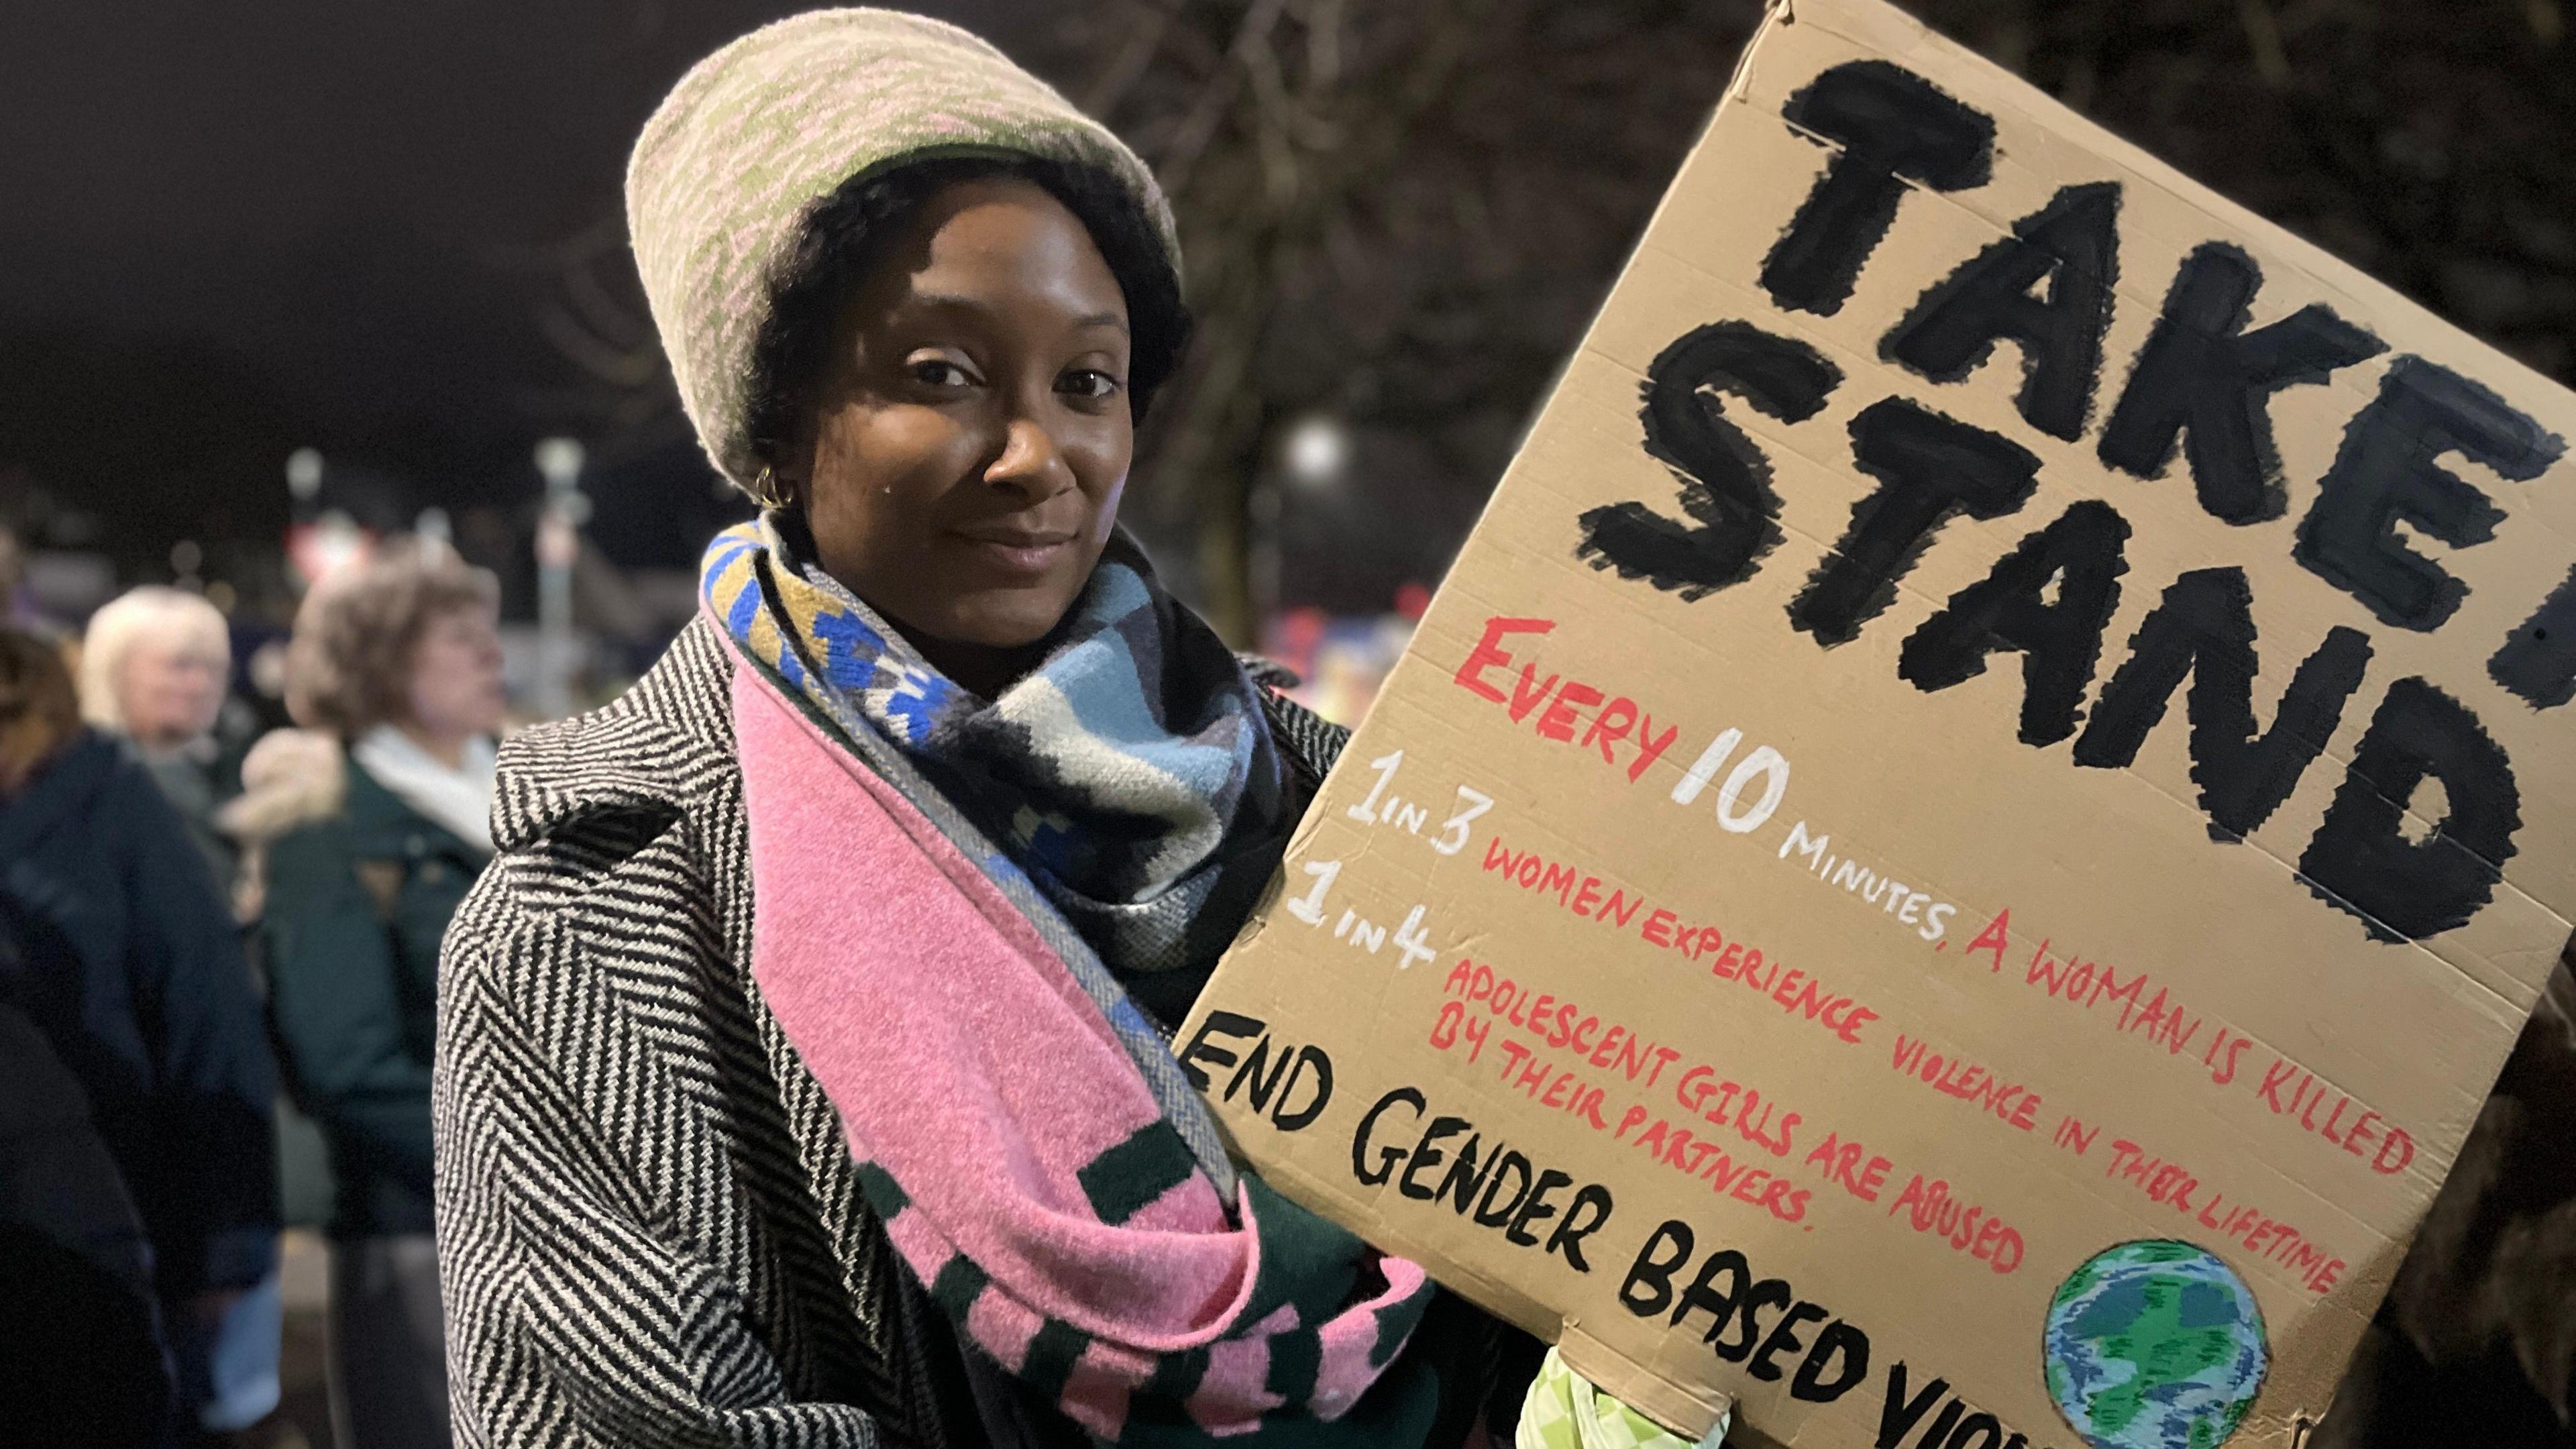 TAKE A
STAND
EVERY 10 MINUTES, A WOMAN IS KILLED
1 IN 3 WOMEN EXPERIENCE VIOLENCE IN THEIR LIFETIME
1 IN 4 ADOLESCENT GIRLS ARE ABUSED
BY THEIR PARTNERS.
END GENDER BASED